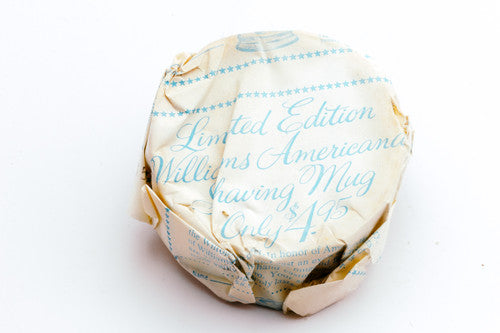 Limited Edition
Williams Americana
Shaving Mug
Only $4.95
in honor of Ame